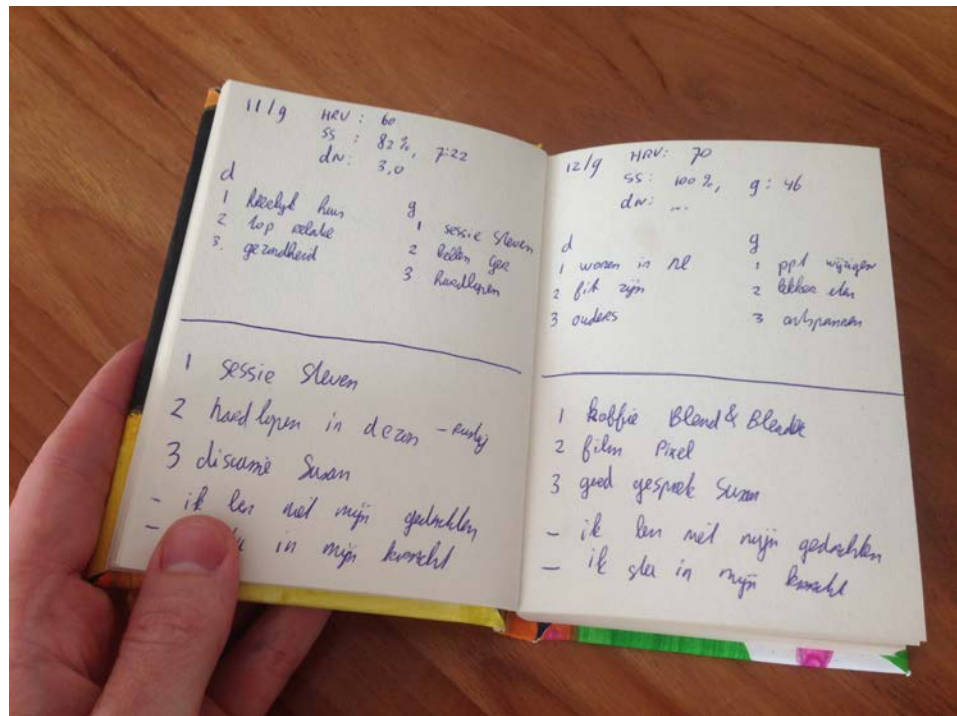 11/9 HRV: 60
ss: 82%, 7:22
dn: 3,0
d
1 heerlijk huis
2 top relatie
3. gezondheid
g
1 sessie Steven
2 bellen Ger
3 hardlopen
1 sessie Steven
2 hardlopen in de zon - rustig
3 discussie Susan
- ik ben niet mijn gedachten
- in mijn kracht
12/9 HRV: 70
ss: 100%, 9:46
dn: ...
d
1 wonen in NL
2 fit zijn
3 ouders
g
1 ppt wijzigen
2 lekker eten
3 ontspannen
1 koffie Blend & Blender
2 film Pixel
3 goed gesprek Susan
- ik ben niet mijn gedachten
- ik sta in mijn kracht